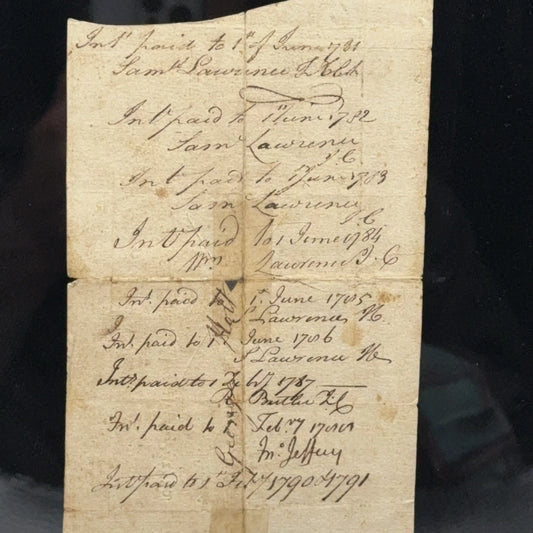 Int paid to 1st of June 1781
Saml Lawrence
Int paid to 1st June 1782
Sam Lawrence
T. C.
Int paid to 1st June 1783
Sam Lawrence
T. C
Int paid to 1 June 1784
Wm Lawrence T. C
Int. paid to 1st. June 1785
S Lawrence
Int. paid to 1 June 1786
S Lawrence
Int paid to 1 Feby 1787
Butler
Int. paid to 1 Feb.ry
Jno Jeffery
Int paid to 1st Feby 1790 & 1791
George